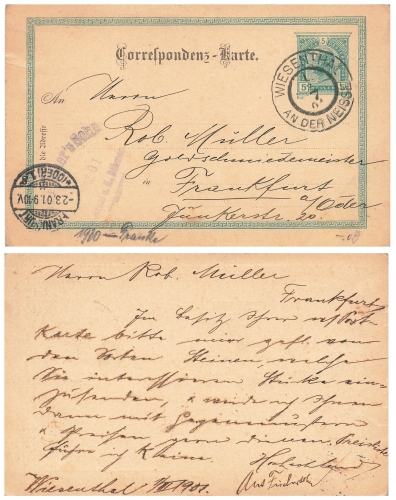 Correspondenz-Karte.
5
WIESENTHAL
AN DER NEISSE
An Herrn
Rob. Müller
Goldschmiedemeister
in Frankfurt
a/Oder
Junkerstr. 20.
die Adresse
FRANKFURT
(ODER) 1
2.3.01.9-10V.
1900 –
Herrn Rob. Müller
Frankfurt
Im Besitz Ihrer
Karte bitte mir gefl. von
den Steinen, welche
Sie interessiren Stücke ein-
zusenden, & werde ich Ihnen
dann mit Gegenmustern
& Preisen gern dienen. Preisliste
führe ich Keine.
Hochachtend
Wiesenthal 1901.